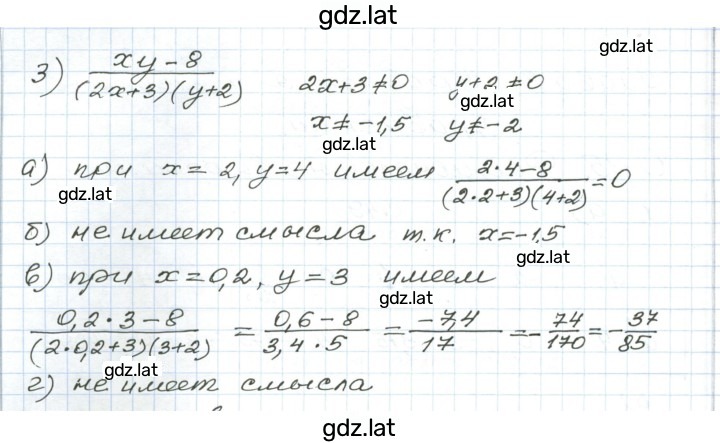 gdz.lat
gdz.lat
3) (xy-8)/((2x+3)(y+2)) 2x+3≠0 y+2≠0
gdz.lat
x≠-1,5 y≠-2
gdz.lat
а) при x=2, y=4 имеем (2·4-8)/((2·2+3)(4+2))=0
gdz.lat
б) не имеет смысла т.к. x=-1,5
gdz.lat
в) при x=0,2, y=3 имеем
gdz.lat
(0,2·3-8)/((2·0,2+3)(3+2)) = (0,6-8)/(3,4·5) = (-7,4)/17 = -74/170 = -37/85
gdz.lat
gdz.lat
г) не имеет смысла
gdz.lat